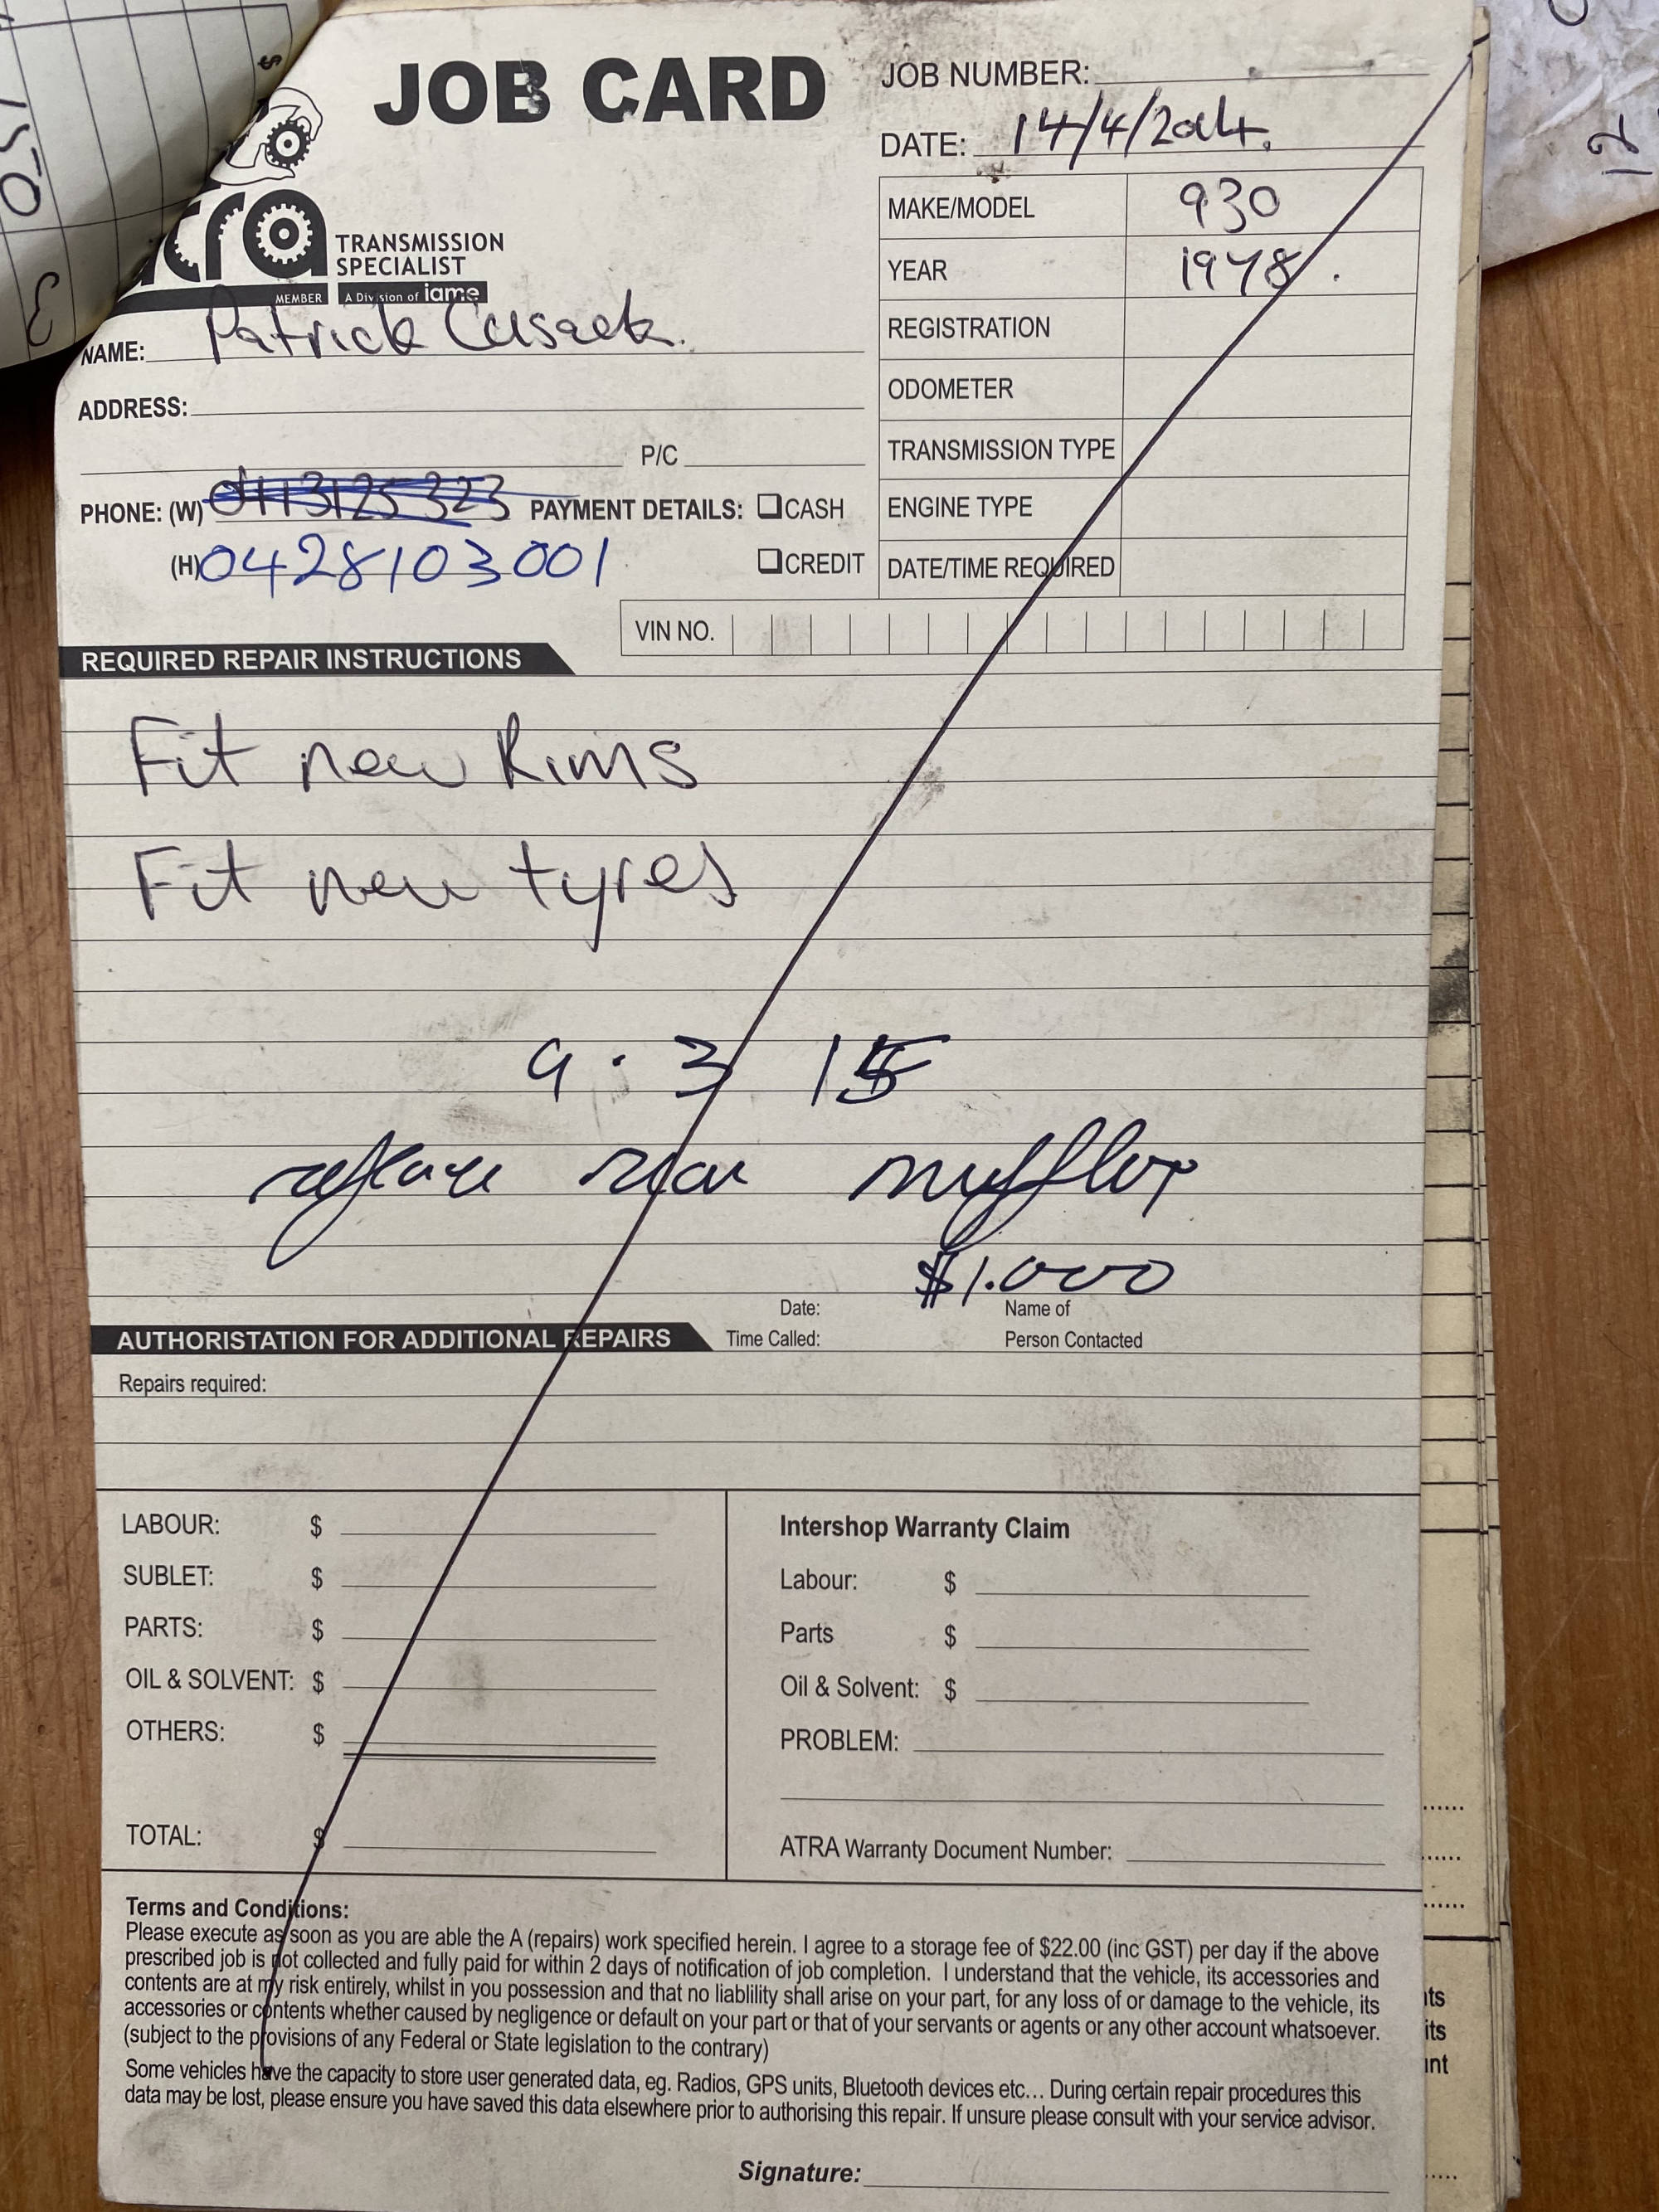 JOB CARD
JOB NUMBER:
DATE: 14/4/2014.
TRANSMISSION
SPECIALIST
MEMBER A Division of iame
MAKE/MODEL 930
YEAR 1978.
REGISTRATION
ODOMETER
TRANSMISSION TYPE
ENGINE TYPE
DATE/TIME REQUIRED
NAME: Patrick Cusack.
ADDRESS:
P/C
PHONE: (W) 0413125323 PAYMENT DETAILS: CASH
(H) 0428103001 CREDIT
VIN NO.
REQUIRED REPAIR INSTRUCTIONS
Fit new Rims
Fit new tyres
9.3 15
replace rear muffler
$1.000
Date: Name of
AUTHORISTATION FOR ADDITIONAL REPAIRS Time Called: Person Contacted
Repairs required:
LABOUR: $
SUBLET: $
PARTS: $
OIL & SOLVENT: $
OTHERS: $
TOTAL: $
Intershop Warranty Claim
Labour: $
Parts $
Oil & Solvent: $
PROBLEM:
ATRA Warranty Document Number:
Terms and Conditions:
Please execute as soon as you are able the A (repairs) work specified herein. I agree to a storage fee of $22.00 (inc GST) per day if the above
prescribed job is not collected and fully paid for within 2 days of notification of job completion. I understand that the vehicle, its accessories and
contents are at my risk entirely, whilst in you possession and that no liablility shall arise on your part, for any loss of or damage to the vehicle, its
accessories or contents whether caused by negligence or default on your part or that of your servants or agents or any other account whatsoever.
(subject to the provisions of any Federal or State legislation to the contrary)
Some vehicles have the capacity to store user generated data, eg. Radios, GPS units, Bluetooth devices etc... During certain repair procedures this
data may be lost, please ensure you have saved this data elsewhere prior to authorising this repair. If unsure please consult with your service advisor.
Signature: